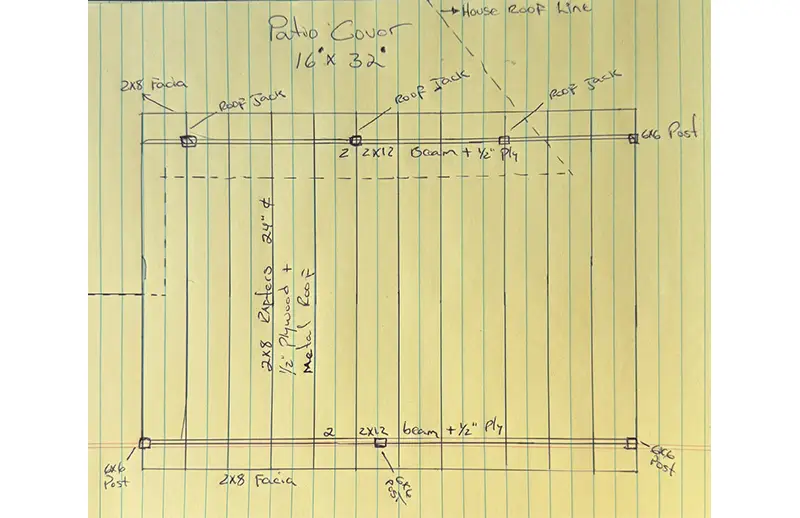 House Roof Line
Patio Cover
16' x 32'
2x8 Facia
Roof Jack
Roof Jack
Roof Jack
6x6 Post
2 2x12 Beam + 1/2" Ply
2x8 Rafters 24" ¢
1/2" Plywood +
Metal Roof
2 2x12 beam + 1/2" Ply
6x6
Post
2x8 Facia
6x6
Post
6x6
Post